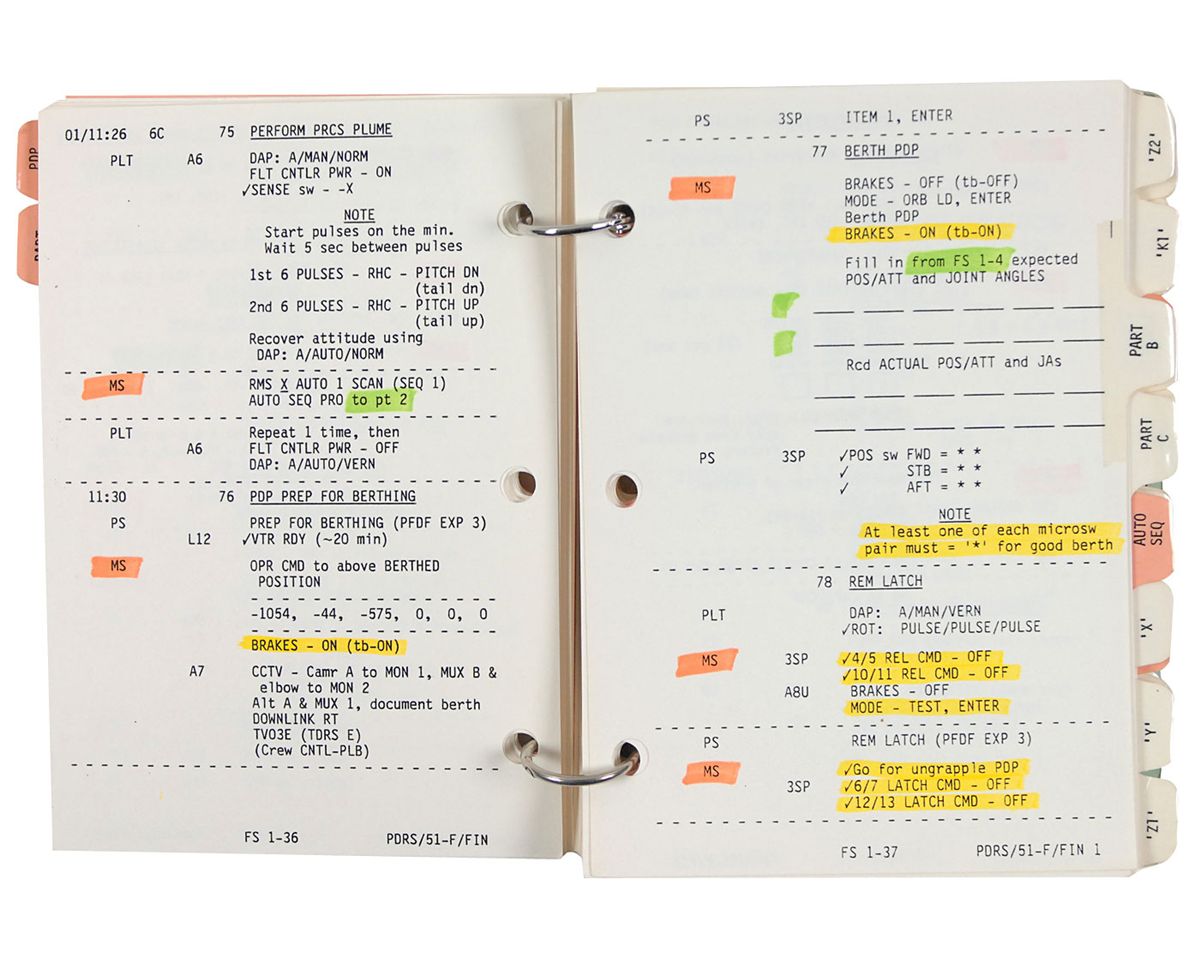 PDP
01/11:26 6C 75 PERFORM PRCS PLUME
PLT A6 DAP: A/MAN/NORM
FLT CNTLR PWR - ON
✓SENSE sw - -X
NOTE
Start pulses on the min.
Wait 5 sec between pulses
1st 6 PULSES - RHC - PITCH DN
(tail dn)
2nd 6 PULSES - RHC - PITCH UP
(tail up)
Recover attitude using
DAP: A/AUTO/NORM
MS RMS X AUTO 1 SCAN (SEQ 1)
AUTO SEQ PRO to pt 2
PLT Repeat 1 time, then
A6 FLT CNTLR PWR - OFF
DAP: A/AUTO/VERN
11:30 76 PDP PREP FOR BERTHING
PS PREP FOR BERTHING (PFDF EXP 3)
L12 ✓VTR RDY (~20 min)
MS OPR CMD to above BERTHED
POSITION
-1054, -44, -575, 0, 0, 0
BRAKES - ON (tb-ON)
A7 CCTV - Camr A to MON 1, MUX B &
elbow to MON 2
Alt A & MUX 1, document berth
DOWNLINK RT
TVO3E (TDRS E)
(Crew CNTL-PLB)
FS 1-36 PDRS/51-F/FIN
PS 3SP ITEM 1, ENTER
77 BERTH PDP
MS BRAKES - OFF (tb-OFF)
MODE - ORB LD, ENTER
Berth PDP
BRAKES - ON (tb-ON)
Fill in from FS 1-4 expected
POS/ATT and JOINT ANGLES
Rcd ACTUAL POS/ATT and JAs
PS 3SP ✓POS sw FWD = * *
✓ STB = * *
✓ AFT = * *
NOTE
At least one of each microsw
pair must = '*' for good berth
78 REM LATCH
PLT DAP: A/MAN/VERN
✓ROT: PULSE/PULSE/PULSE
MS 3SP ✓4/5 REL CMD - OFF
✓10/11 REL CMD - OFF
A8U BRAKES - OFF
MODE - TEST, ENTER
PS REM LATCH (PFDF EXP 3)
MS ✓Go for ungrapple PDP
3SP ✓6/7 LATCH CMD - OFF
✓12/13 LATCH CMD - OFF
FS 1-37 PDRS/51-F/FIN 1
'Z2'
'K1'
PART
B
PART
C
AUTO
SEQ
'X'
'Y'
'Z1'